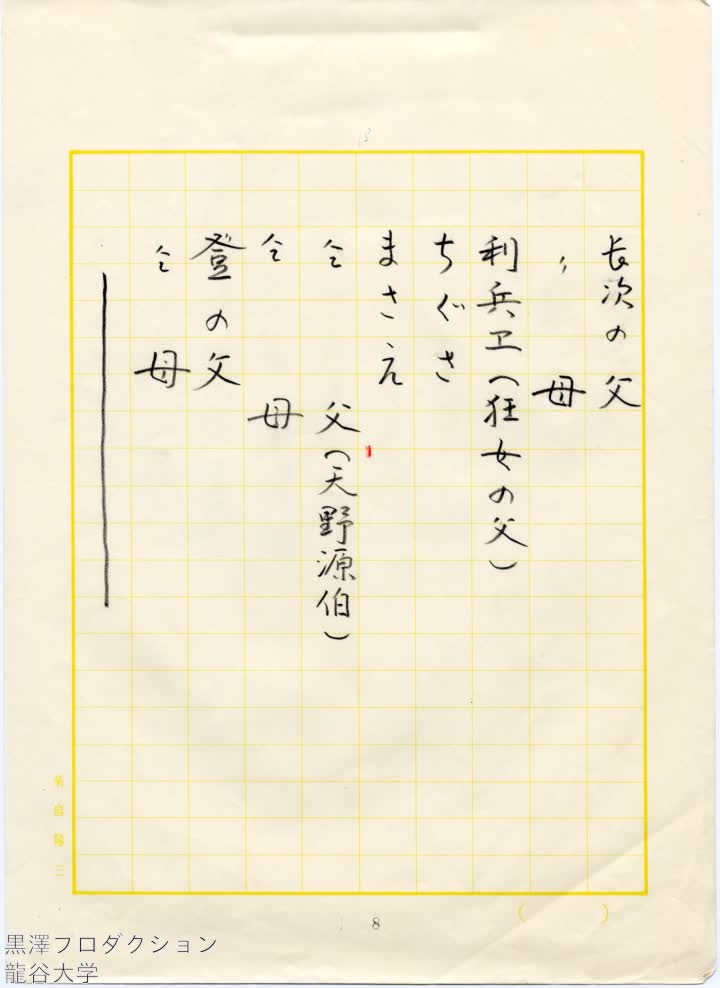 長次の父
〃 母
利兵ヱ(狂女の父)
ちぐさ
まさえ
仝 父(天野源伯)
仝 母
登の父
仝 母
菊島隆三
( )
8
黒澤プロダクション
龍谷大学